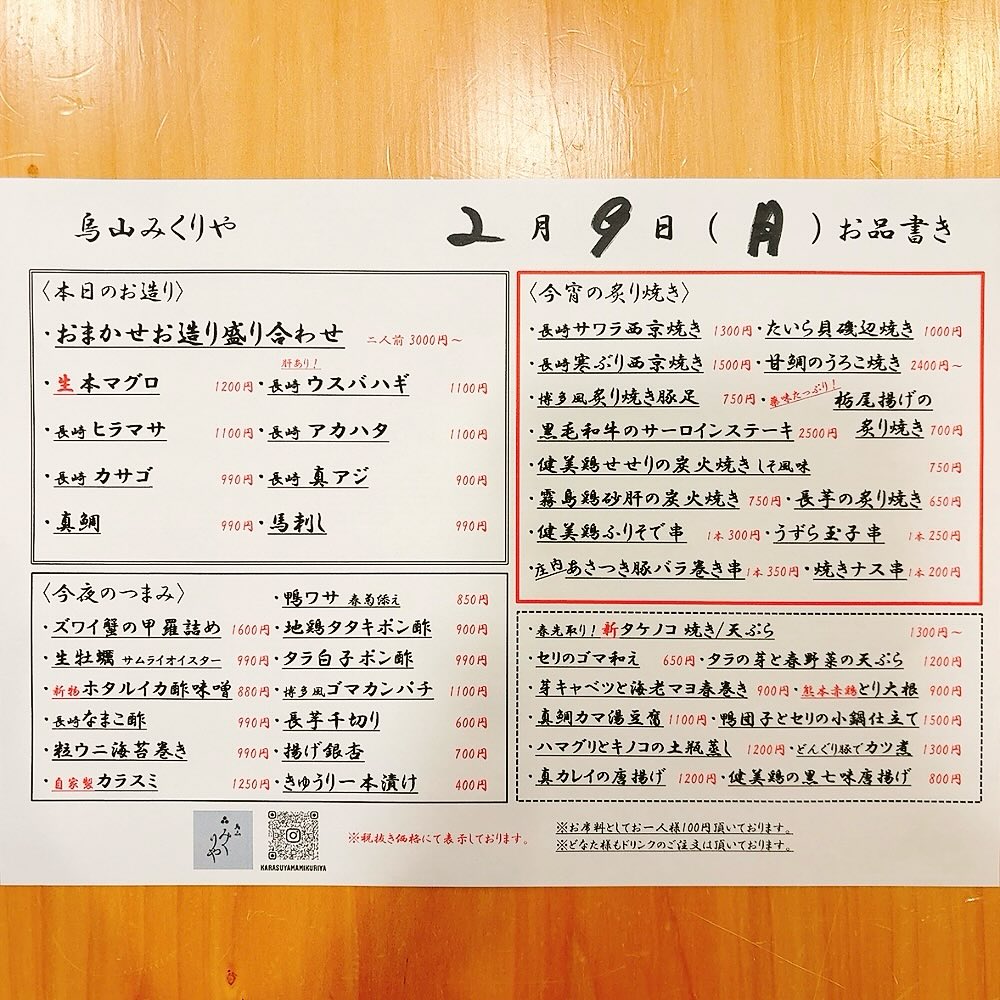 烏山みくりや
2月9日(月)お品書き
〈本日のお造り〉
・おまかせお造り盛り合わせ 二人前 3000円〜
・生本マグロ 1200円
肝あり!
・長崎ウスバハギ 1100円
・長崎ヒラマサ 1100円
・長崎アカハタ 1100円
・長崎カサゴ 990円
・長崎真アジ 900円
・真鯛 990円
・馬刺し 990円
〈今夜のつまみ〉
・ズワイ蟹の甲羅詰め 1600円
・生牡蠣 サムライオイスター 990円
・新物ホタルイカ酢味噌 880円
・長崎なまこ酢 990円
・粒ウニ海苔巻き 990円
・自家製カラスミ 1250円
・鴨ワサ 春菊添え 850円
・地鶏タタキポン酢 900円
・タラ白子ポン酢 990円
・博多風ゴマカンパチ 1100円
・長芋千切り 600円
・揚げ銀杏 700円
・きゅうり一本漬け 400円
〈今宵の炙り焼き〉
・長崎サワラ西京焼き 1300円・たいら貝磯辺焼き 1000円
・長崎寒ぶり西京焼き 1500円・甘鯛のうろこ焼き 2400円〜
・博多風炙り焼き豚足 750円
・薬味たっぷり!栃尾揚げの
炙り焼き 700円
・黒毛和牛のサーロインステーキ 2500円
・健美鶏せせりの炭火焼き しそ風味 750円
・霧島鶏砂肝の炭火焼き 750円・長芋の炙り焼き 650円
・健美鶏ふりそで串 1本300円・うずら玉子串 1本250円
・庄内あさつき豚バラ巻き串 1本350円・焼きナス串 1本200円
・春先取り!新タケノコ 焼き/天ぷら 1300円〜
・セリのゴマ和え 650円・タラの芽と春野菜の天ぷら 1200円
・芽キャベツと海老マヨ春巻き 900円・熊本赤鶏とり大根 900円
・真鯛カマ湯豆腐 1100円・鴨団子とセリの小鍋仕立て 1500円
・ハマグリとキノコの土瓶蒸し 1200円・どんぐり豚でカツ煮 1300円
・真カレイの唐揚げ 1200円・健美鶏の黒七味唐揚げ 800円
烏山
みくりや
KARASUYAMAMIKURIYA
※税抜き価格にて表示しております。
※お席料としてお一人様100円頂いております。
※どなた様もドリンクのご注文は頂いております。